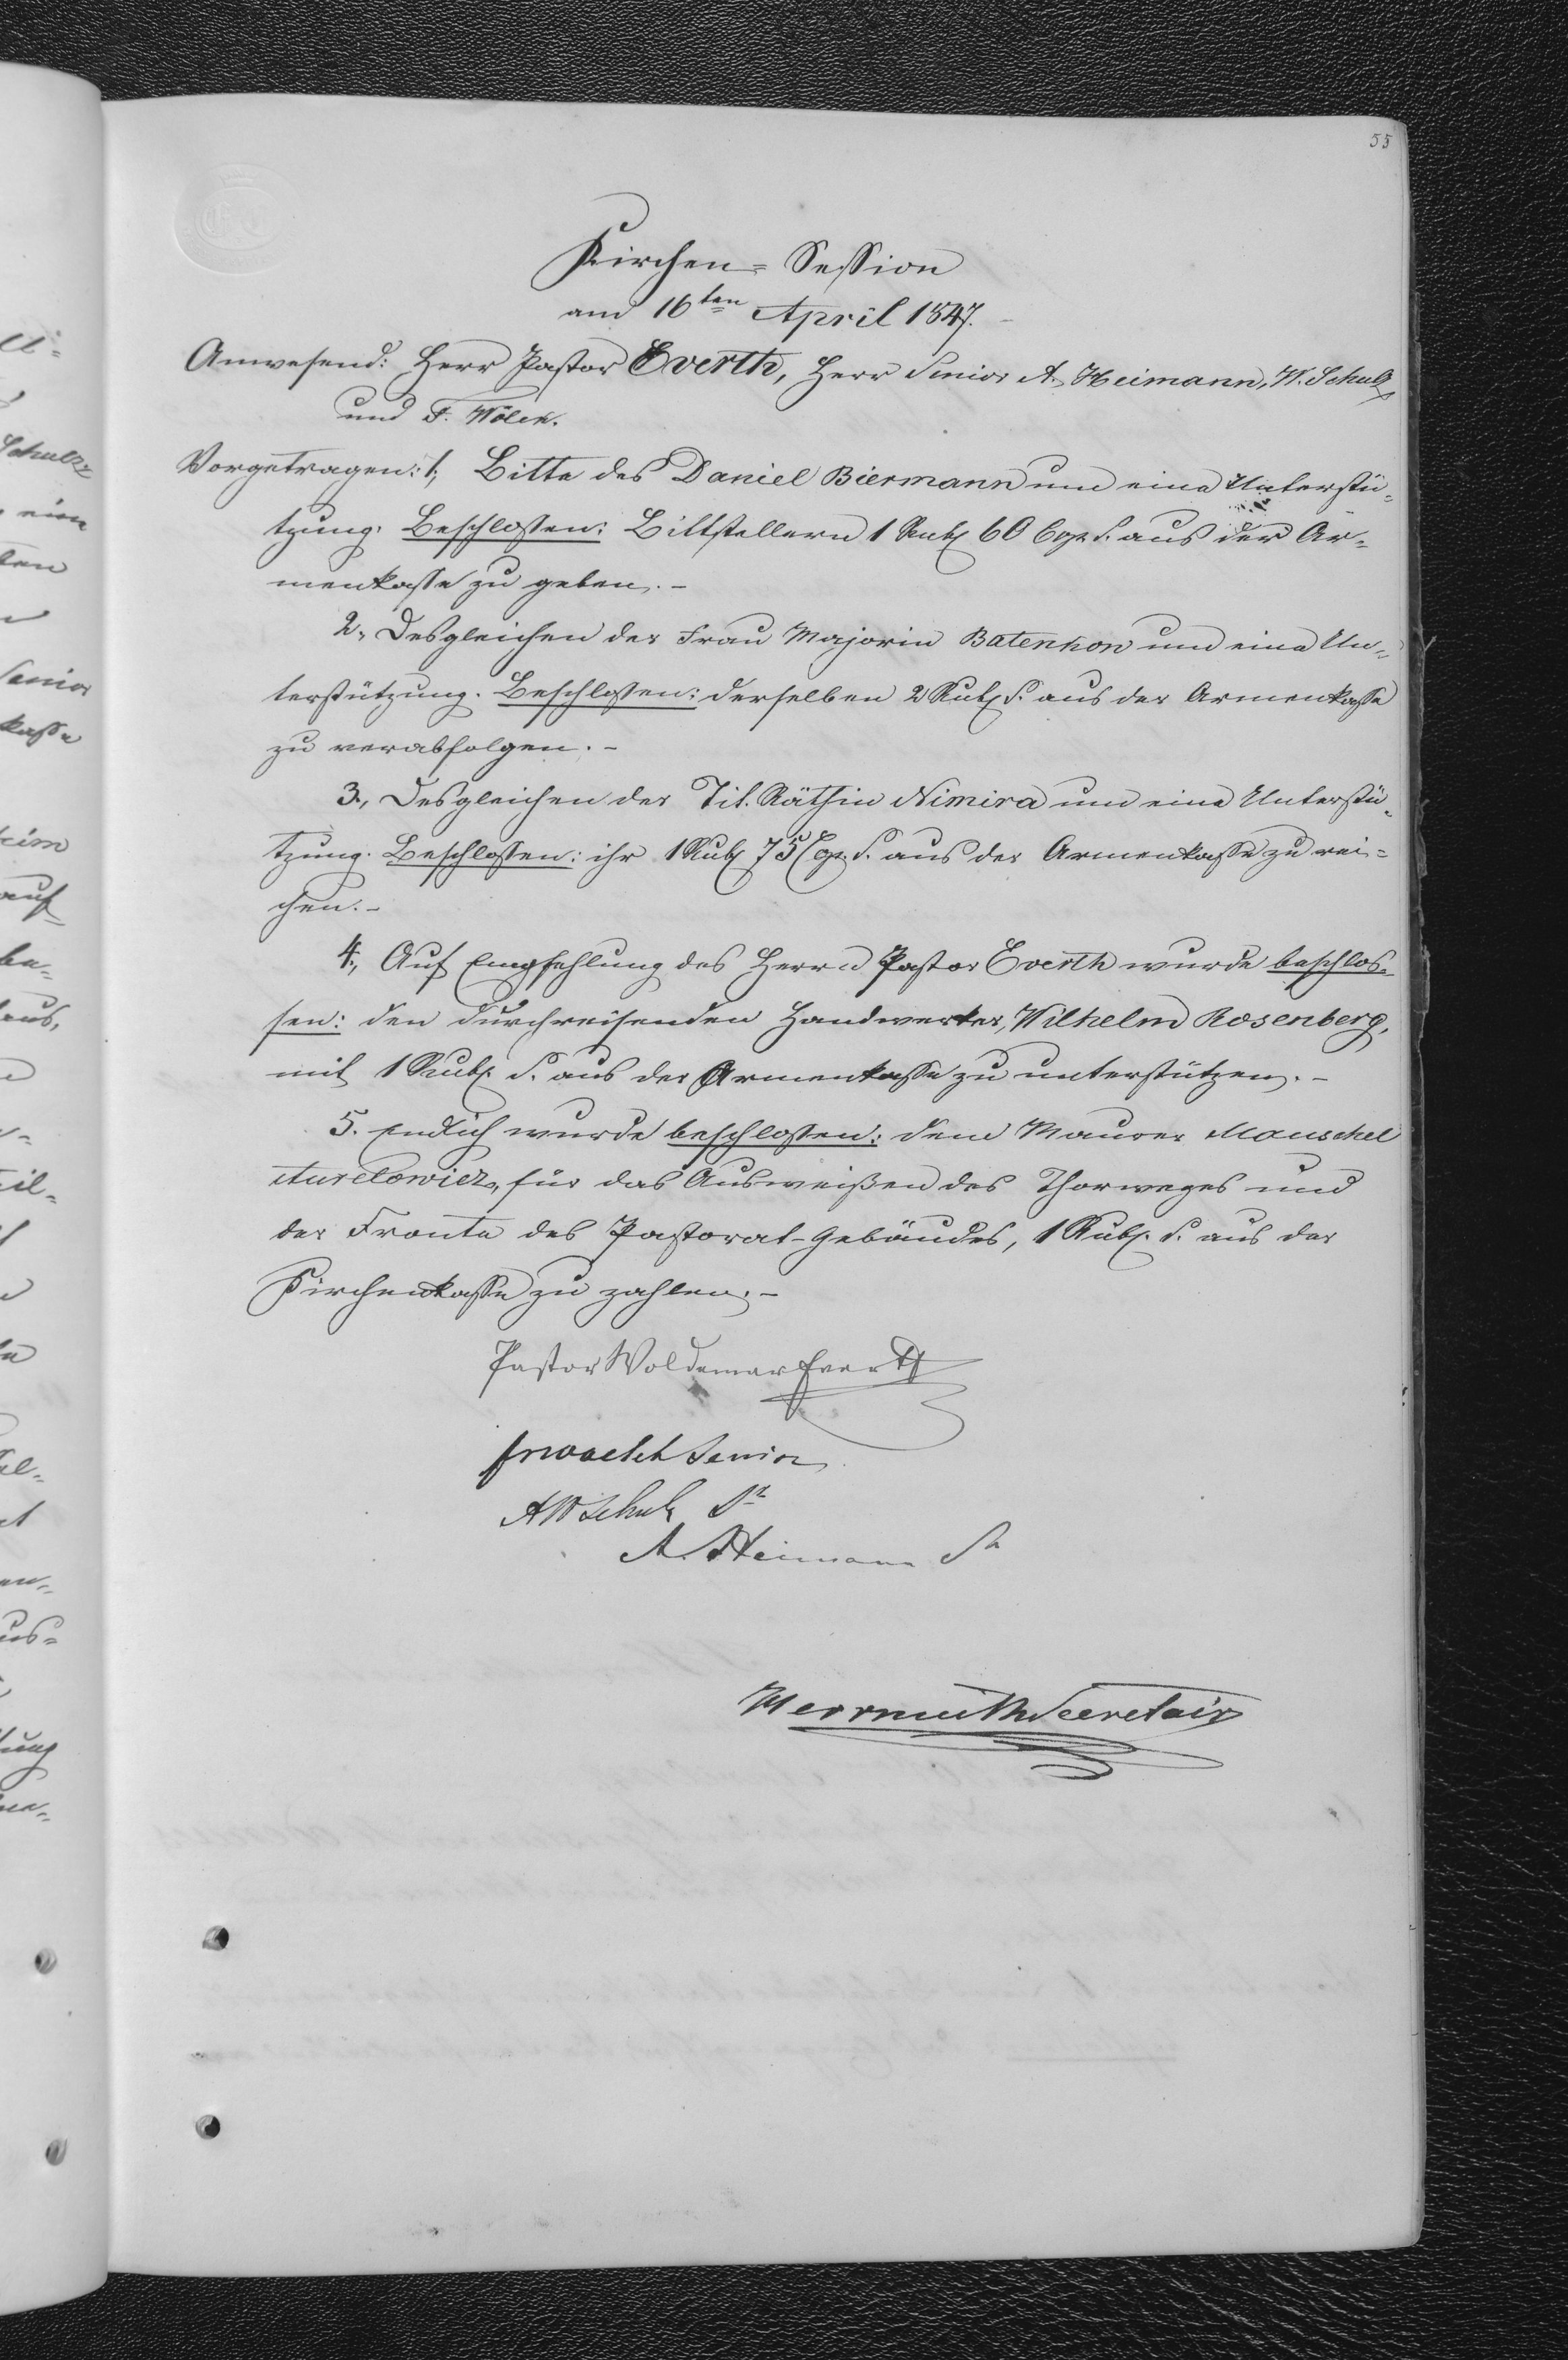 55
Kirchen-Session
am 16ten April 1847.
Anwesend: Herr Pastor Everth, Herr Senior A. Heimann, W. Schulz
und F. Wölck.
Vorgetragen: 1, Bitte des Daniel Biermann um eine Unterstü-
tzung. Beschlossen: Bittstellern 1 Rub. 60 Cop. S. aus der Ar-
menkasse zu geben. –
2, Desgleichen der Frau Majorin Batenkon um eine Un-
terstützung. Beschlossen: derselben 2 Rub. S. aus der Armenkasse
zu verabfolgen. –
3, Desgleichen der Tit. Räthin Nimira um eine Unterstü-
tzung. Beschlossen: ihr 1 Rub. 75 Cop. S. aus der Armenkasse zu rei-
chen. –
4, Auf Empfehlung des Herrn Pastor Everth wurde beschlos-
sen: den durchreisenden Handwerker, Wilhelm Rosenberg,
mit 1 Rub. S. aus der Armenkasse zu unterstützen. –
5. Endlich wurde beschlossen: dem Maurer Mauschel
für das Ausweißen des Thorweges und
der Fronte des Pastorat-Gebäudes, 1 Rub. S. aus der
Kirchenkasse zu zahlen. –
Pastor Woldemar Everth
Senior
AW Schulz Sr
A. Heimann Sr
Herrmuth Secretair